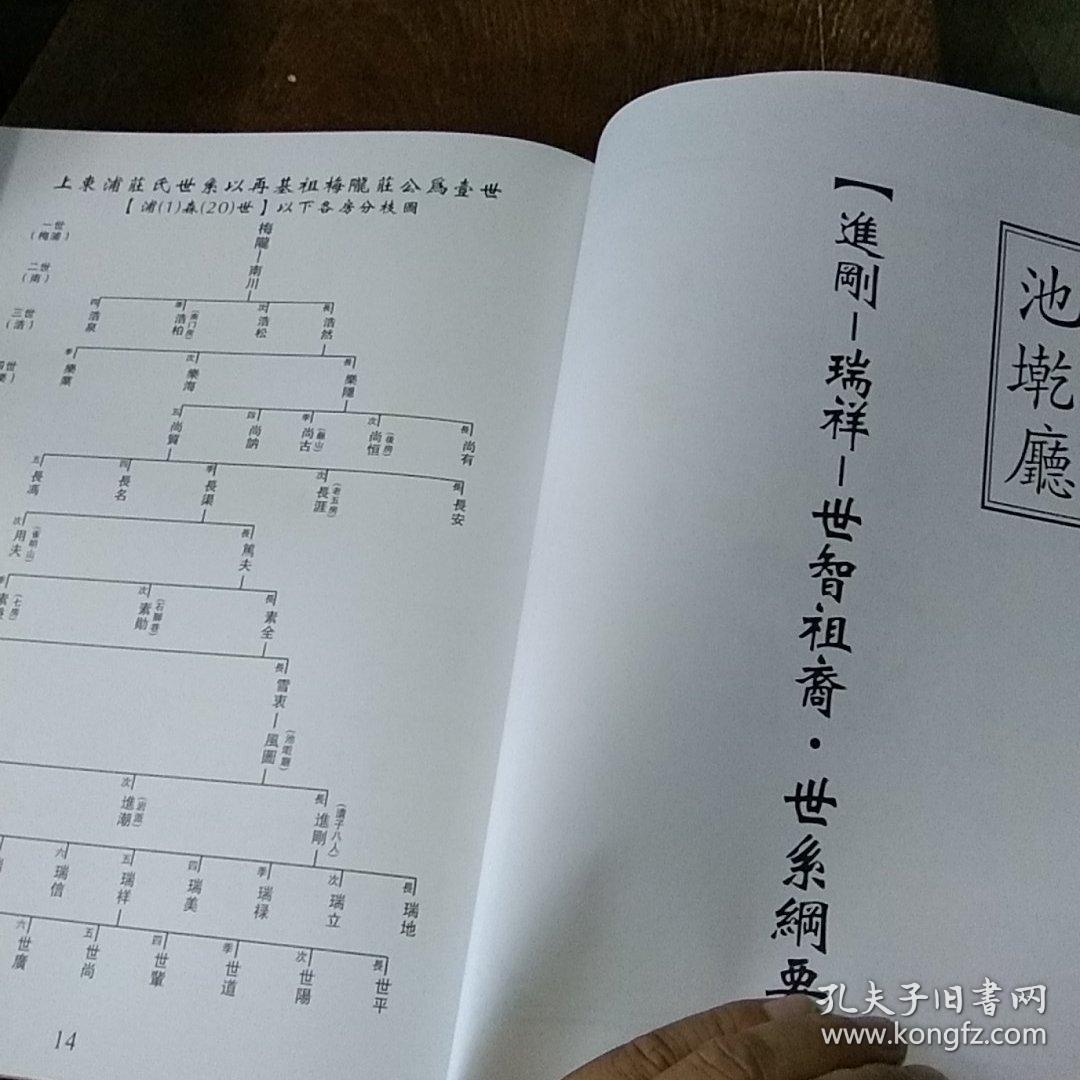 上東浦莊氏世系以再基祖梅隴莊公爲壹世
【浦(1)森(20)世】以下各房分枝圖
一世
(梅浦)
梅隴—南川
二世
(南)
三世
(浩)
長 浩然
次 浩松
浩柏
四 浩泉
長 樂隱
次 樂海
季 樂業
長 尚有
次 尚恒 (後房)
季 尚古
四 尚訥
五 尚質
長 長安
次 長涯 (老五房)
季 長渠
四 長名
五 長馮
長 篤夫
次 用夫
長 素全
次 素勛 (石獅巷)
季 (七房)
長 雪衷—風圖
長 進剛 (溝子八人)
次 進潮
長 瑞地
次 瑞立
季 瑞禄
四 瑞美
五 瑞祥
六 瑞信
長 世平
次 世陽
季 世道
四 世輩
五 世尚
六 世廣
14
池墘廳
【進剛—瑞祥—世智祖裔·世系綱要
孔夫子旧書网
www.kongfz.com